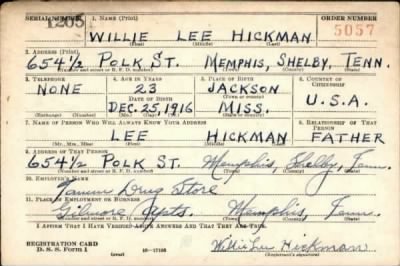 SERIAL NUMBER 1. NAME (Print) ORDER NUMBER
1205 WILLIE LEE HICKMAN 5057
(First) (Middle) (Last)
2. ADDRESS (Print)
654 1/2 POLK ST. MEMPHIS, SHELBY, TENN.
(Number and street or R. F. D. number) (Town) (County) (State)
3. TELEPHONE 4. AGE IN YEARS 5. PLACE OF BIRTH 6. COUNTRY OF CITIZENSHIP
NONE 23 JACKSON
DATE OF BIRTH U.S.A.
DEC. 25, 1916 MISS.
7. NAME OF PERSON WHO WILL ALWAYS KNOW YOUR ADDRESS 8. RELATIONSHIP OF THAT PERSON
LEE HICKMAN FATHER
(Mr., Mrs., Miss) (First) (Middle) (Last)
9. ADDRESS OF THAT PERSON
654 1/2 POLK ST. Memphis, Shelby, Tenn.
(Number and street or R. F. D. number) (Town) (County) (State)
10. EMPLOYER'S NAME
Drug Store
11. PLACE OF EMPLOYMENT OR BUSINESS
Gilmore Apts. Memphis, Tenn.
(Number and street or R. F. D. number) (Town) (County) (State)
I AFFIRM THAT I HAVE VERIFIED ABOVE ANSWERS AND THAT THEY ARE TRUE.
REGISTRATION CARD
D. S. S. Form 1 (over) 16—17105 Willie Lee Hickman
(Registrant's signature)